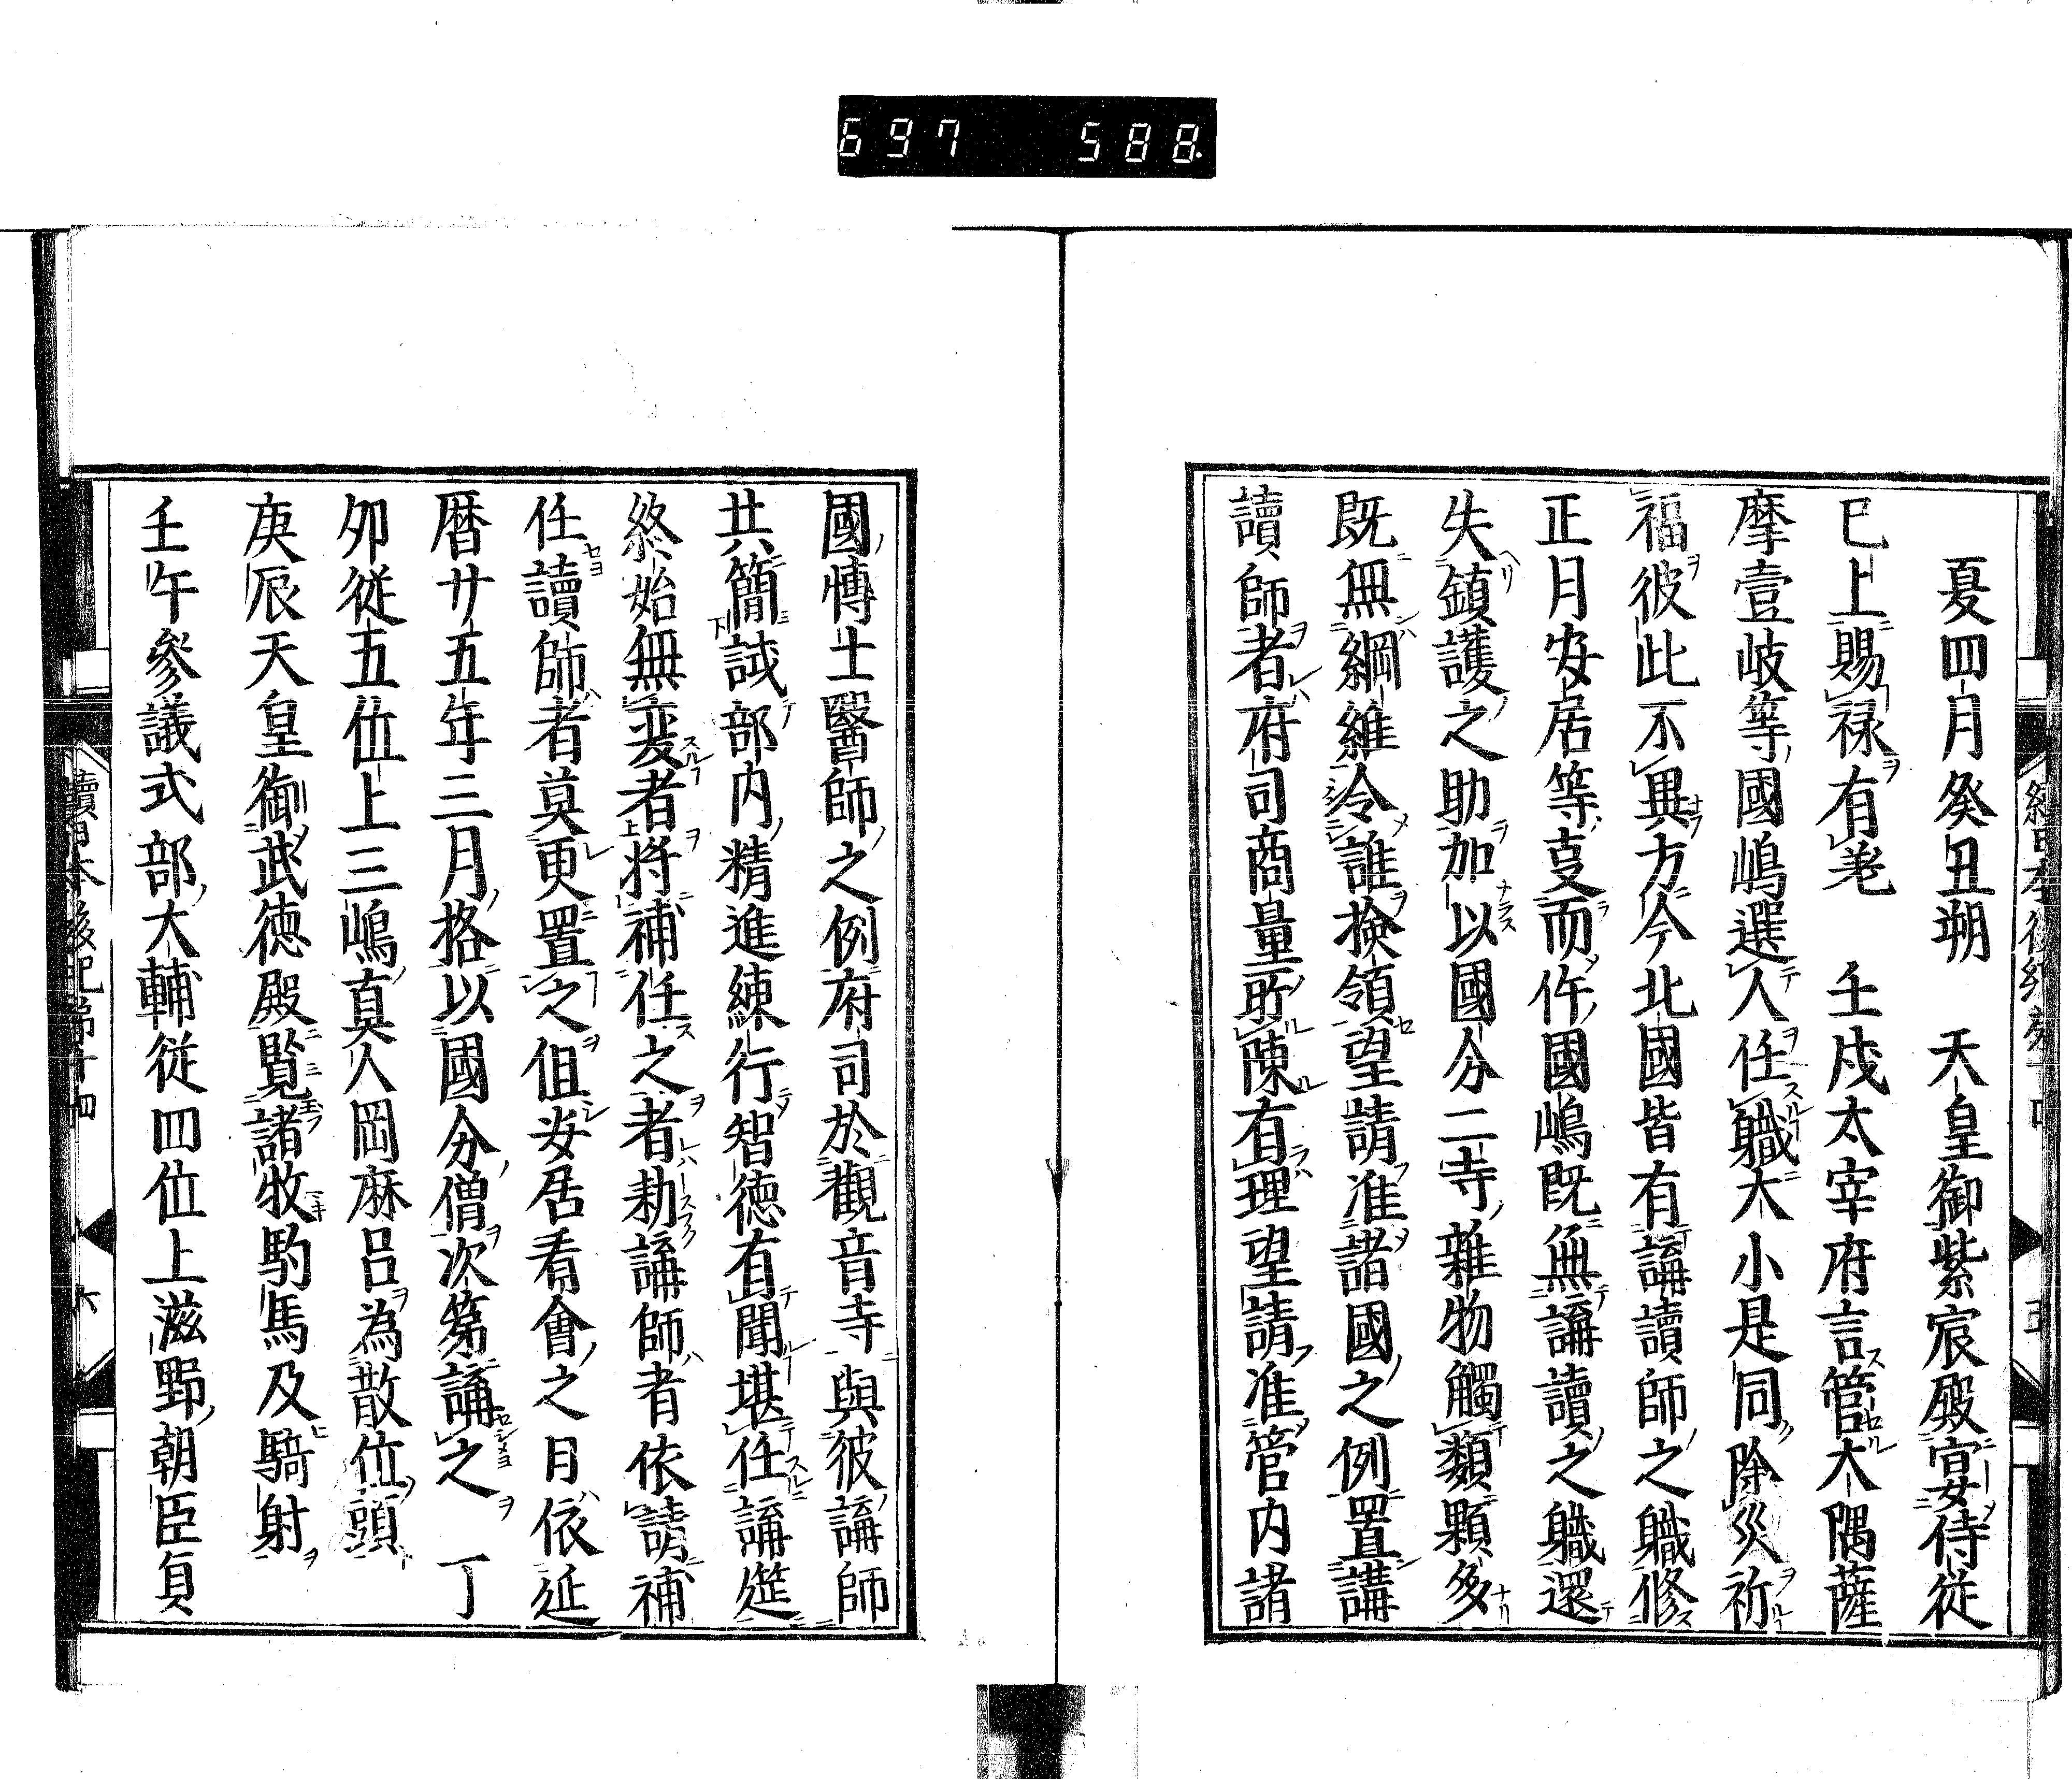 697 588.
夏四月癸丑朔 天皇御紫宸殿宴侍從
已上賜禄有差 壬戌太宰府言管大隅薩
摩壹岐等國嶋選人任職大小是同除災祈
福彼此不異方今北國皆有講讀師之職修
正月安居等㕝而件國嶋既無講讀之職還
失鎮護之助加以國分二寺雜物觸類顆多
既無綱維令誰檢領望請准諸國之例置講
讀師者府司商量所陳有理望請准管内諸
國博士醫師之例府司於觀音寺與彼講師
共簡試部内精進練行智徳有聞堪任講筵
終始無変者將補任之者勅講師者依請補
任讀師者莫更置之但安居看會之月依延
暦廿五年三月格以國分僧次第講之 丁
夘從五位上三嶋真人岡麻呂為散位頭
庚辰天皇御武徳殿覧諸牧駒馬及騎射
壬午參議式部大輔從四位上滋野朝臣貞
續日本後紀第十四 六